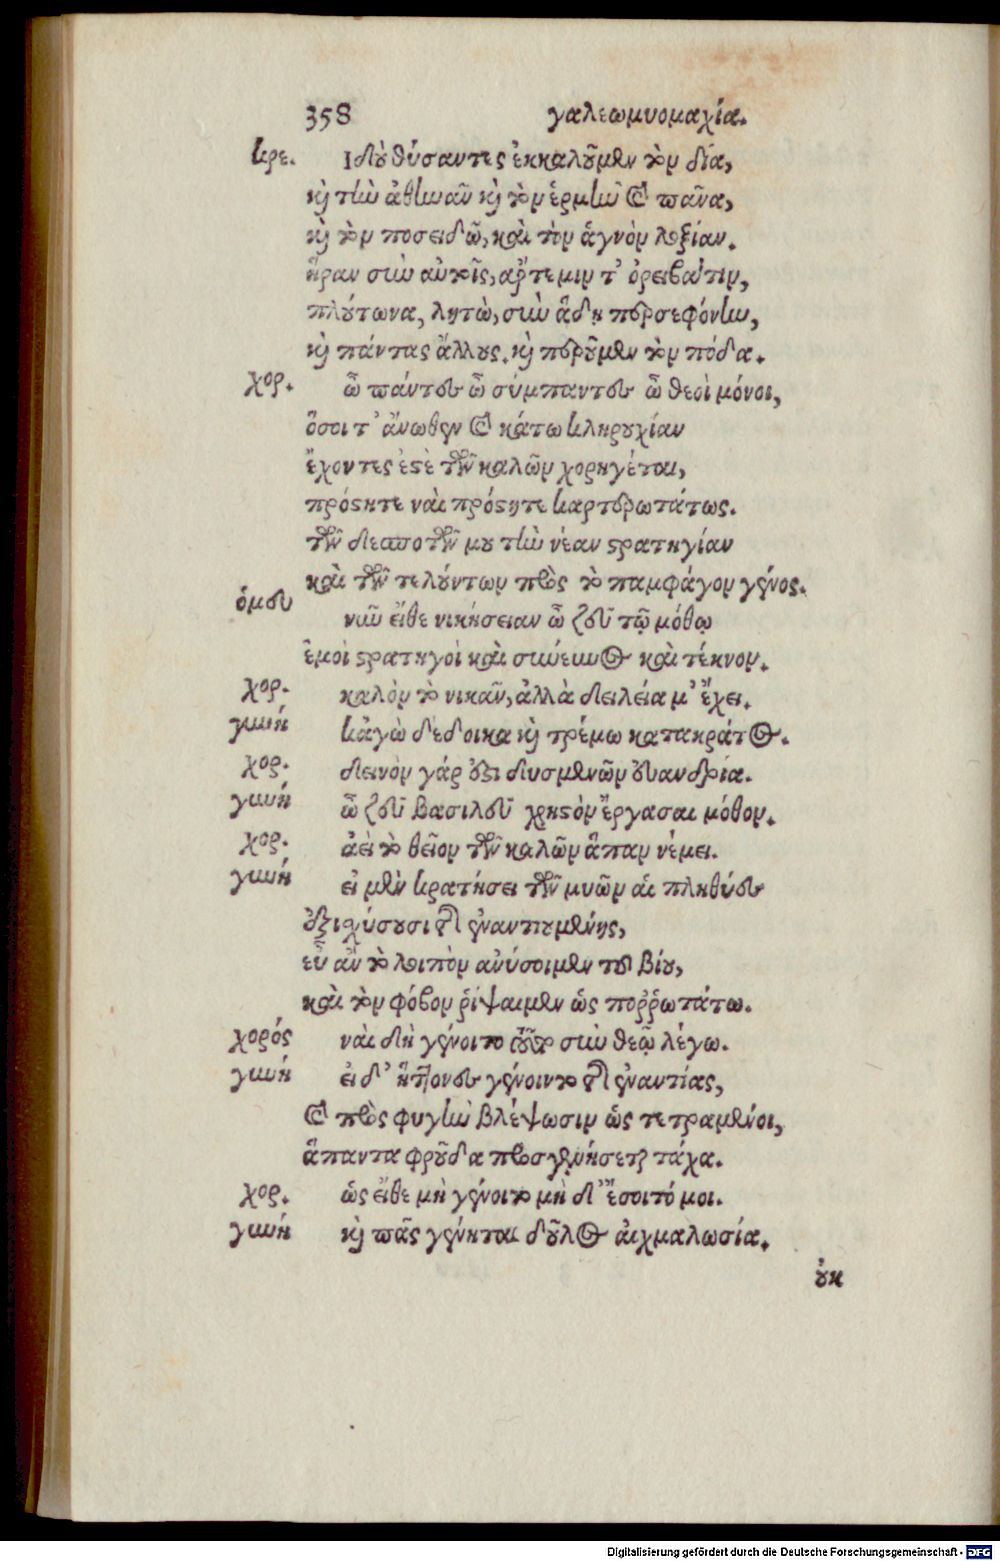 358 γαλεωμυομαχία.
κρε. Ιδοὺ θύσαντες ἐκκαλοῦμεν τὸν δία,
καὶ τὴν ἀθηνᾶν καὶ τὸν ἑρμῆν καὶ πᾶνα,
καὶ τὸν ποσειδῶ, καὶ τὸν ἁγνὸν λοξίαν.
ἥραν σὺν αὐτοῖς, ἄρτεμιν τ' ὀρειβάτιν,
πλούτωνα, λητὼ, σὺν ἅδῃ περσεφόνην,
καὶ πάντας ἄλλους. καὶ περοῦμεν τὸν πόδα.
χορ. ὦ πάντες ὦ σύμπαντες ὦ θεοὶ μόνοι,
ὅσοι τ' ἄνωθεν καὶ κάτω κληρουχίαν
ἔχοντες ἐστὲ τῶν καλῶν χορηγέται,
πρόστητε ναὶ πρόστητε καρτερωτάτως.
τῶν δεσποτῶν μου τὴν νέαν στρατηγίαν
καὶ τῶν τελούντων πρὸς τὸ παμφάγον γένος.
ὁμοῦ νῦν εἴθε νικήσειαν ὦ ζεῦ τῷ μόθῳ
ἐμοὶ στρατηγοὶ καὶ σύνευνος καὶ τέκνον.
χορ. καλὸν τὸ νικᾶν, ἀλλὰ δειλεία μ' ἔχει.
γυνή κἀγὼ δέδοικα καὶ τρέμω κατακράτος.
χορ. δεινὸν γάρ ἐστι δυσμενῶν εὐανδρία.
γυνή ὦ ζεῦ βασιλεῦ χρηστὸν ἔργασαι μόθον.
χορ. ἀεὶ τὸ θεῖον τῶν καλῶν ἅπαν νέμει.
γυνή εἰ μὲν κρατήσει τῶν μυῶν αἱ πληθύες
ἐξισχύσουσι τῆς ἐναντιουμένης,
εὖ ἂν τὸ λοιπὸν ἀνύσοιμεν τοῦ βίου,
καὶ τὸν φόβον ῥίψαιμεν ὡς πορῤῥωτάτω.
χορός ναὶ δὴ γένοιτο τοῦτο σὺν θεῷ λέγω.
γυνή εἰ δ' ἥττονες γένοιντο τῆς ἐναντίας,
καὶ πρὸς φυγὴν βλέψωσιν ὡς τετραμένοι,
ἅπαντα φροῦδα προσγενήσεται τάχα.
χορ. ὡς εἴθε μὴ γένοιτο μὴ δ' ἔσοιτό μοι.
γυνή καὶ πᾶς γένηται δοῦλος αἰχμαλωσία.
οὐκ
Digitalisierung gefördert durch die Deutsche Forschungsgemeinschaft - DFG